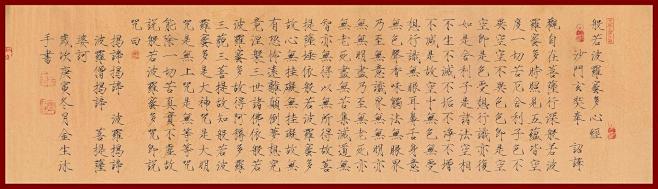 般若波羅蜜多心經
沙門玄奘奉 詔譯
觀自在菩薩行深般若波
羅蜜多時照見五蘊皆空
度一切苦厄舍利子色不
異空空不異色色即是空
空即是色受想行識亦復
如是舍利子是諸法空相
不生不滅不垢不淨不增
不減是故空中無色無受
想行識無眼耳鼻舌身意
無色聲香味觸法無眼界
乃至無意識界無無明亦
無無明盡乃至無老死亦
無老死盡無苦集滅道無
智亦無得以無所得故菩
提薩埵依般若波羅蜜多
故心無掛礙無掛礙故無
有恐怖遠離顛倒夢想究
竟涅槃三世諸佛依般若
波羅蜜多故得阿耨多羅
三藐三菩提故知般若波
羅蜜多是大神咒是大明
咒是無上咒是無等等咒
能除一切苦真實不虛故
說般若波羅蜜多咒即說
咒曰
揭諦揭諦 波羅揭諦
波羅僧揭諦 菩提薩
婆訶
歲次庚寅冬月金生沐
手書